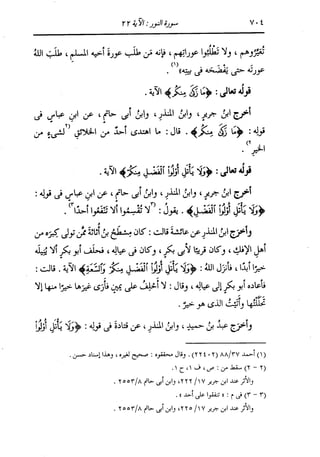 ٧٠٤ سورة النور : الآية ٢٢
تُعَيِّروهم ، ولا تَطلُبُوا عوراتِهم ، فإنه مَن طلَب عورةَ أخيه المسلمِ ، طلَب اللهُ
عورتَه حتى يَفْضَحَه فى بيتِه»(١) .
قولُه تعالى : ﴿مَا زَكَى مِنكُم﴾ الآية .
أخرج ابنُ جريرٍ ، وابنُ المنذرِ ، وابنُ أبى حاتمٍ ، عن ابنِ عباسٍ فى
قولِه : ﴿مَا زَكَى مِنكُم﴾ . قال : ما اهتدى أحدٌ من الخلائقِ (٢لشىءٍ من
الخيرِ٢) .
قولُه تعالى : ﴿وَلَا يَأْتَلِ أُوْلُوا الْفَضْلِ مِنكُمْ﴾ الآية .
أخرج ابنُ جريرٍ ، وابنُ المنذرِ ، وابنُ أبى حاتمٍ ، عن ابنِ عباسٍ فى قولِه :
﴿وَلَا يَأْتَلِ أُوْلُوا الْفَضْلِ﴾ . يقولُ : (٣لا تُقسِموا ألا تَنفَعوا أحدًا٣) .
وأخرَج ابنُ المنذرِ عن عائشةَ قالت : كان مِسْطَحُ بنُ أُثاثةَ ممن تولى كِبرَه من
أهلِ الإفكِ ، وكان قريبًا لأبى بكرٍ ، وكان فى عيالِه ، فحلَف أبو بكرٍ ألا يُنيلَه
خيرًا أبدًا ، فأنزَل اللهُ : ﴿وَلَا يَأْتَلِ أُوْلُوا الْفَضْلِ مِنكُمْ وَالسَّعَةِ﴾ الآية . قالت :
فأعاده أبو بكرٍ إلى عيالِه ، وقال : لا أحلِفُ على يمينٍ فأرَى غيرَها خيرًا منها إلا
تحلَّلتُها وأتَيتُ الذى هو خيرٌ .
وأخرَج عبدُ بنُ حميدٍ ، وابنُ المنذرِ ، عن قتادةَ فى قولِه : ﴿وَلَا يَأْتَلِ أُوْلُوا
(١) أحمد ٨٨/٣٧ (٢٢٤٠٢) . وقال محققوه : صحيح لغيره ، وهذا إسناد حسن .
(٢ - ٢) سقط من : ص ، ف ١، ح ١.
والأثر عند ابن جرير ٢٢٢/١٧، وابن أبى حاتم ٢٥٥٣/٨ .
(٣ - ٣) فى م : « تنفقوا على أحد » .
والأثر عند ابن جرير ٢٢٥/١٧، وابن أبى حاتم ٢٥٥٣/٨ .